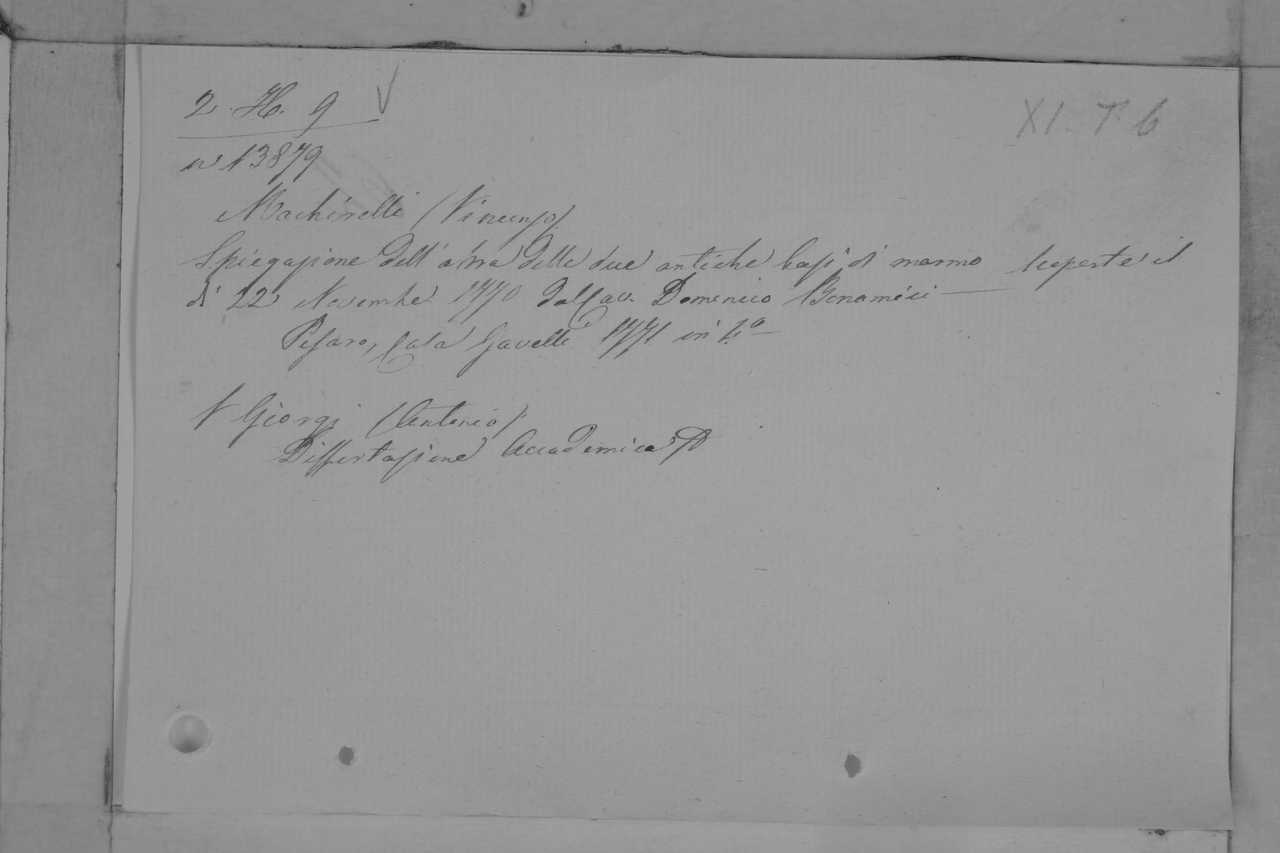 2. H. 9 V
XI. T. 6
n 13879
Machirelli (Vincenzo)
Spiegazione dell'ara delle due antiche basi di marmo — scoperte il
dì 22 Novembre 1770 dal Cav. Domenico Bonamini —
Pesaro, Casa Gavelli 1771 in 4.º
V Giorgi (Antonio)
Dissertazione Accademica